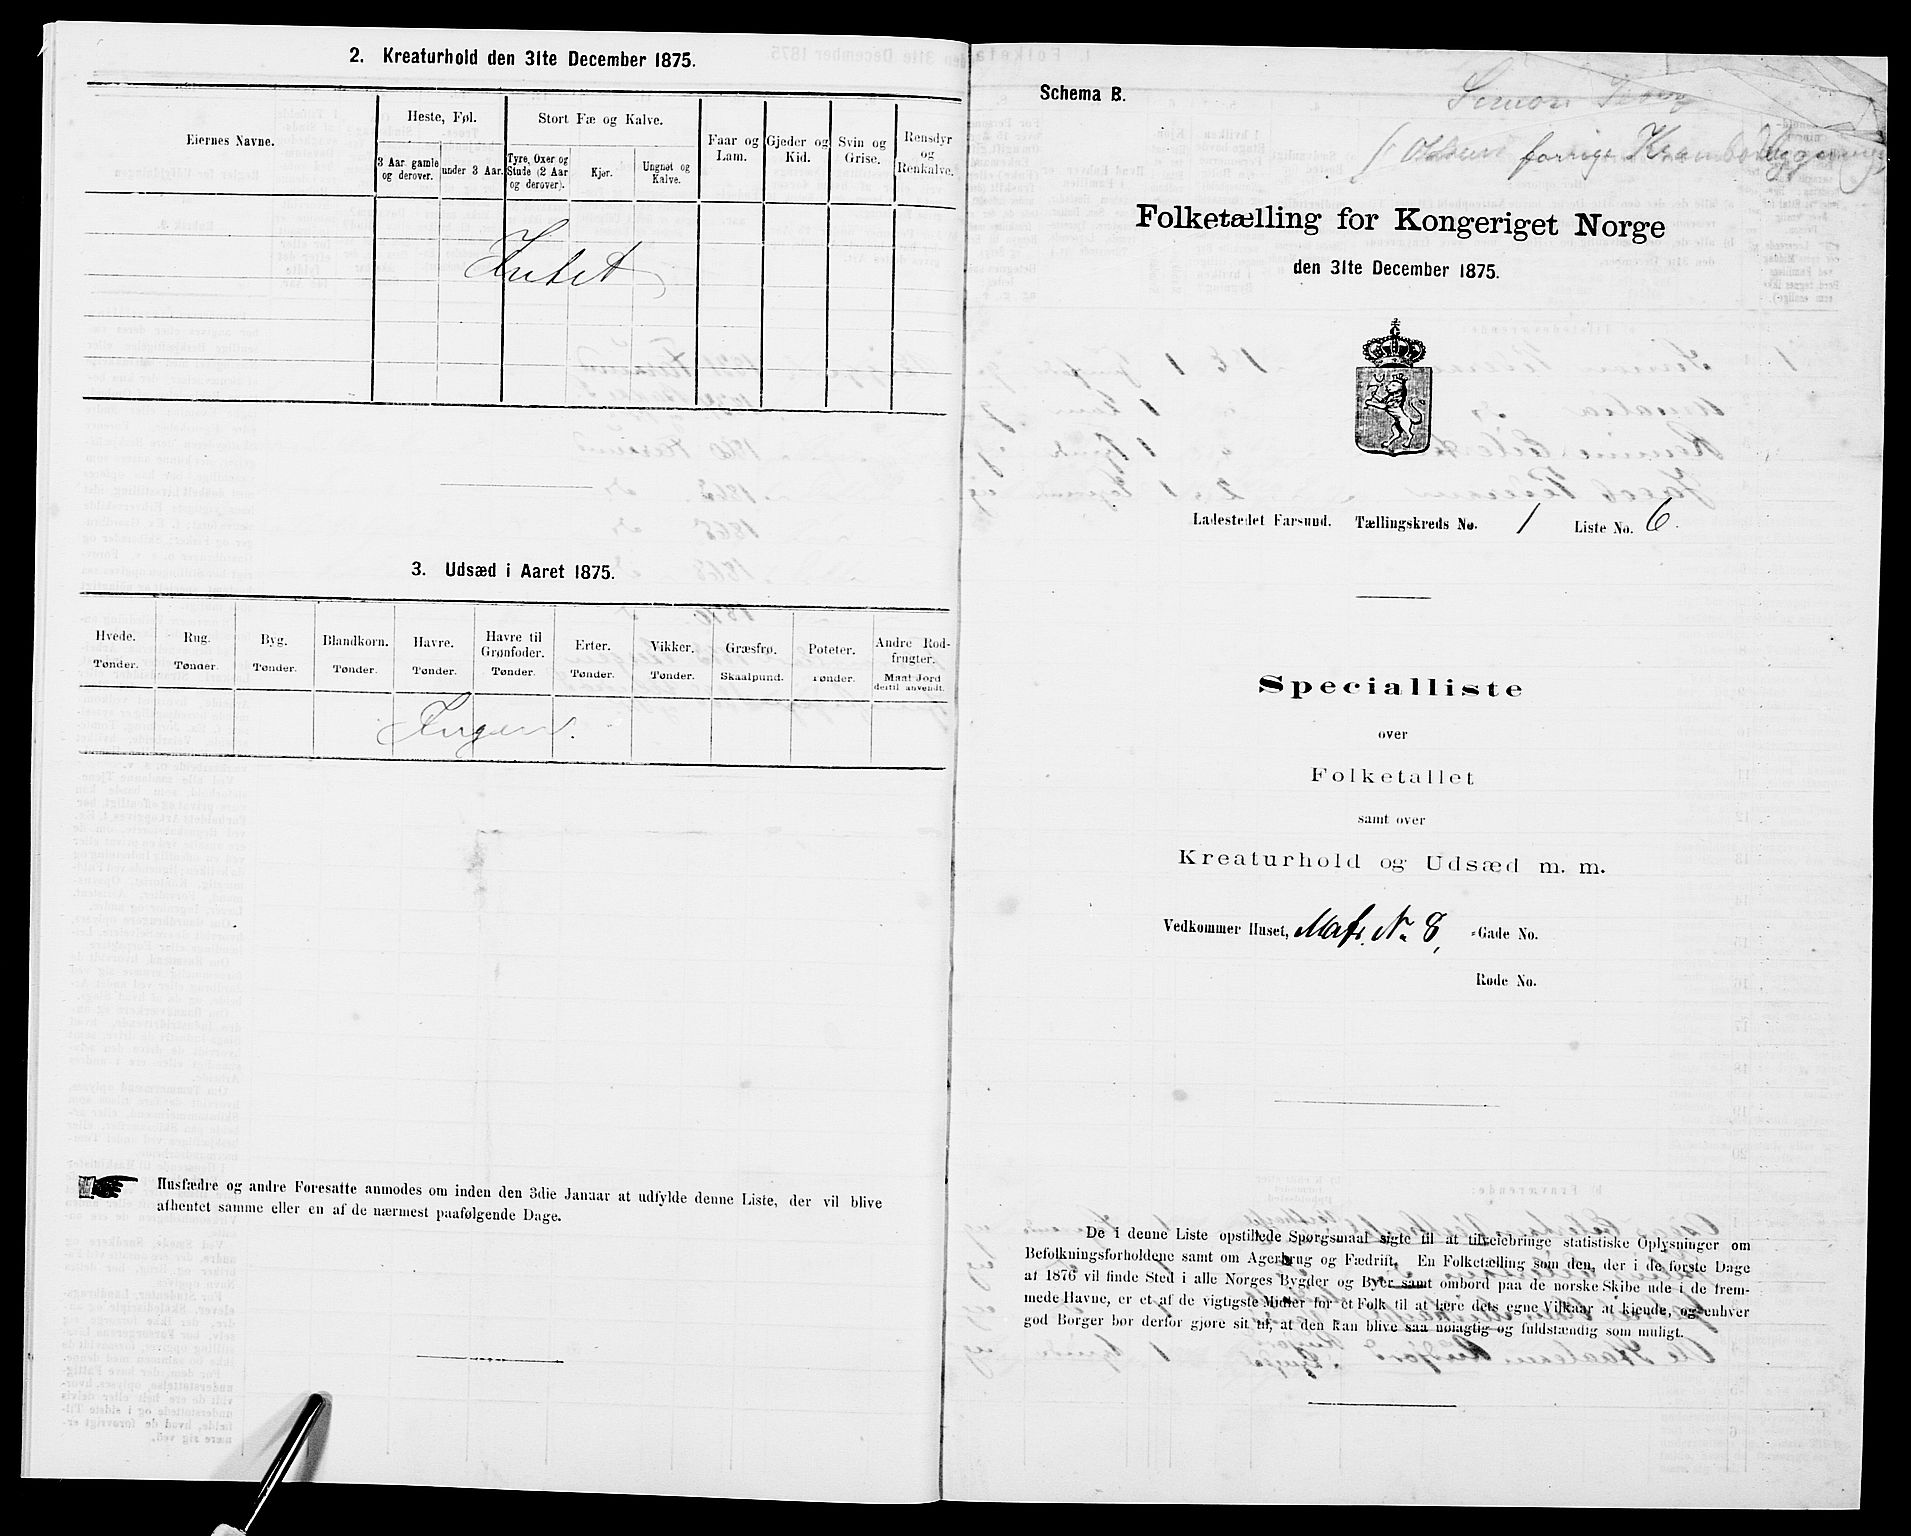 2. Kreaturhold den 31te December 1875.
Eiernes Navne.
Heste, Føl.
Stort Fæ og Kalve.
Faar og Lam.
Gjeder og Kid.
Svin og Grise.
Rensdyr og Renkalve.
3 Aar gamle og derover.
under 3 Aar.
Tyre, Oxer og Stude (2 Aar og derover).
Kjør.
Ungnøt og Kalve.
Intet
3. Udsæd i Aaret 1875.
Hvede. Rug. Byg. Blandkorn. Havre. Havre til Grønfoder. Erter. Vikker. Græsfrø. Poteter. Andre Rodfrugter.
Tønder. Tønder. Tønder. Tønder. Tønder. Tønder. Tønder. Tønder. Skaalpund. Tønder. Maal Jord dertil anvendt.
Ingen.
Husfædre og andre Foresatte anmodes om inden den 3die Januar at udfylde denne Liste, der vil blive
afhentet samme eller en af de nærmest paafølgende Dage.
Schema B.
Simon
forrige Krambodbygning
Folketælling for Kongeriget Norge
den 31te December 1875.
Ladestedet Farsund. Tællingskreds No. 1 Liste No. 6.
Specialliste
over
Folketallet
samt over
Kreaturhold og Udsæd m. m.
Vedkommer Huset, Matr. Nr. 8, -Gade No.
Rode No.
De i denne Liste opstillede Spørgsmaal sigte til at tilveiebringe statistiske Oplysninger om
Befolkningsforholdene samt om Agerbrug og Fædrift. En Folketælling som den, der i de første Dage
af 1876 vil finde Sted i alle Norges Bygder og Byer samt ombord paa de norske Skibe ude i de frem-
mede Havne, er et af de vigtigste Midler for et Folk til at lære dets egne Vilkaar at kjende, og enhver
god Borger bør derfor gjøre sit til, at den kan blive saa nøiagtig og fuldstændig som muligt.